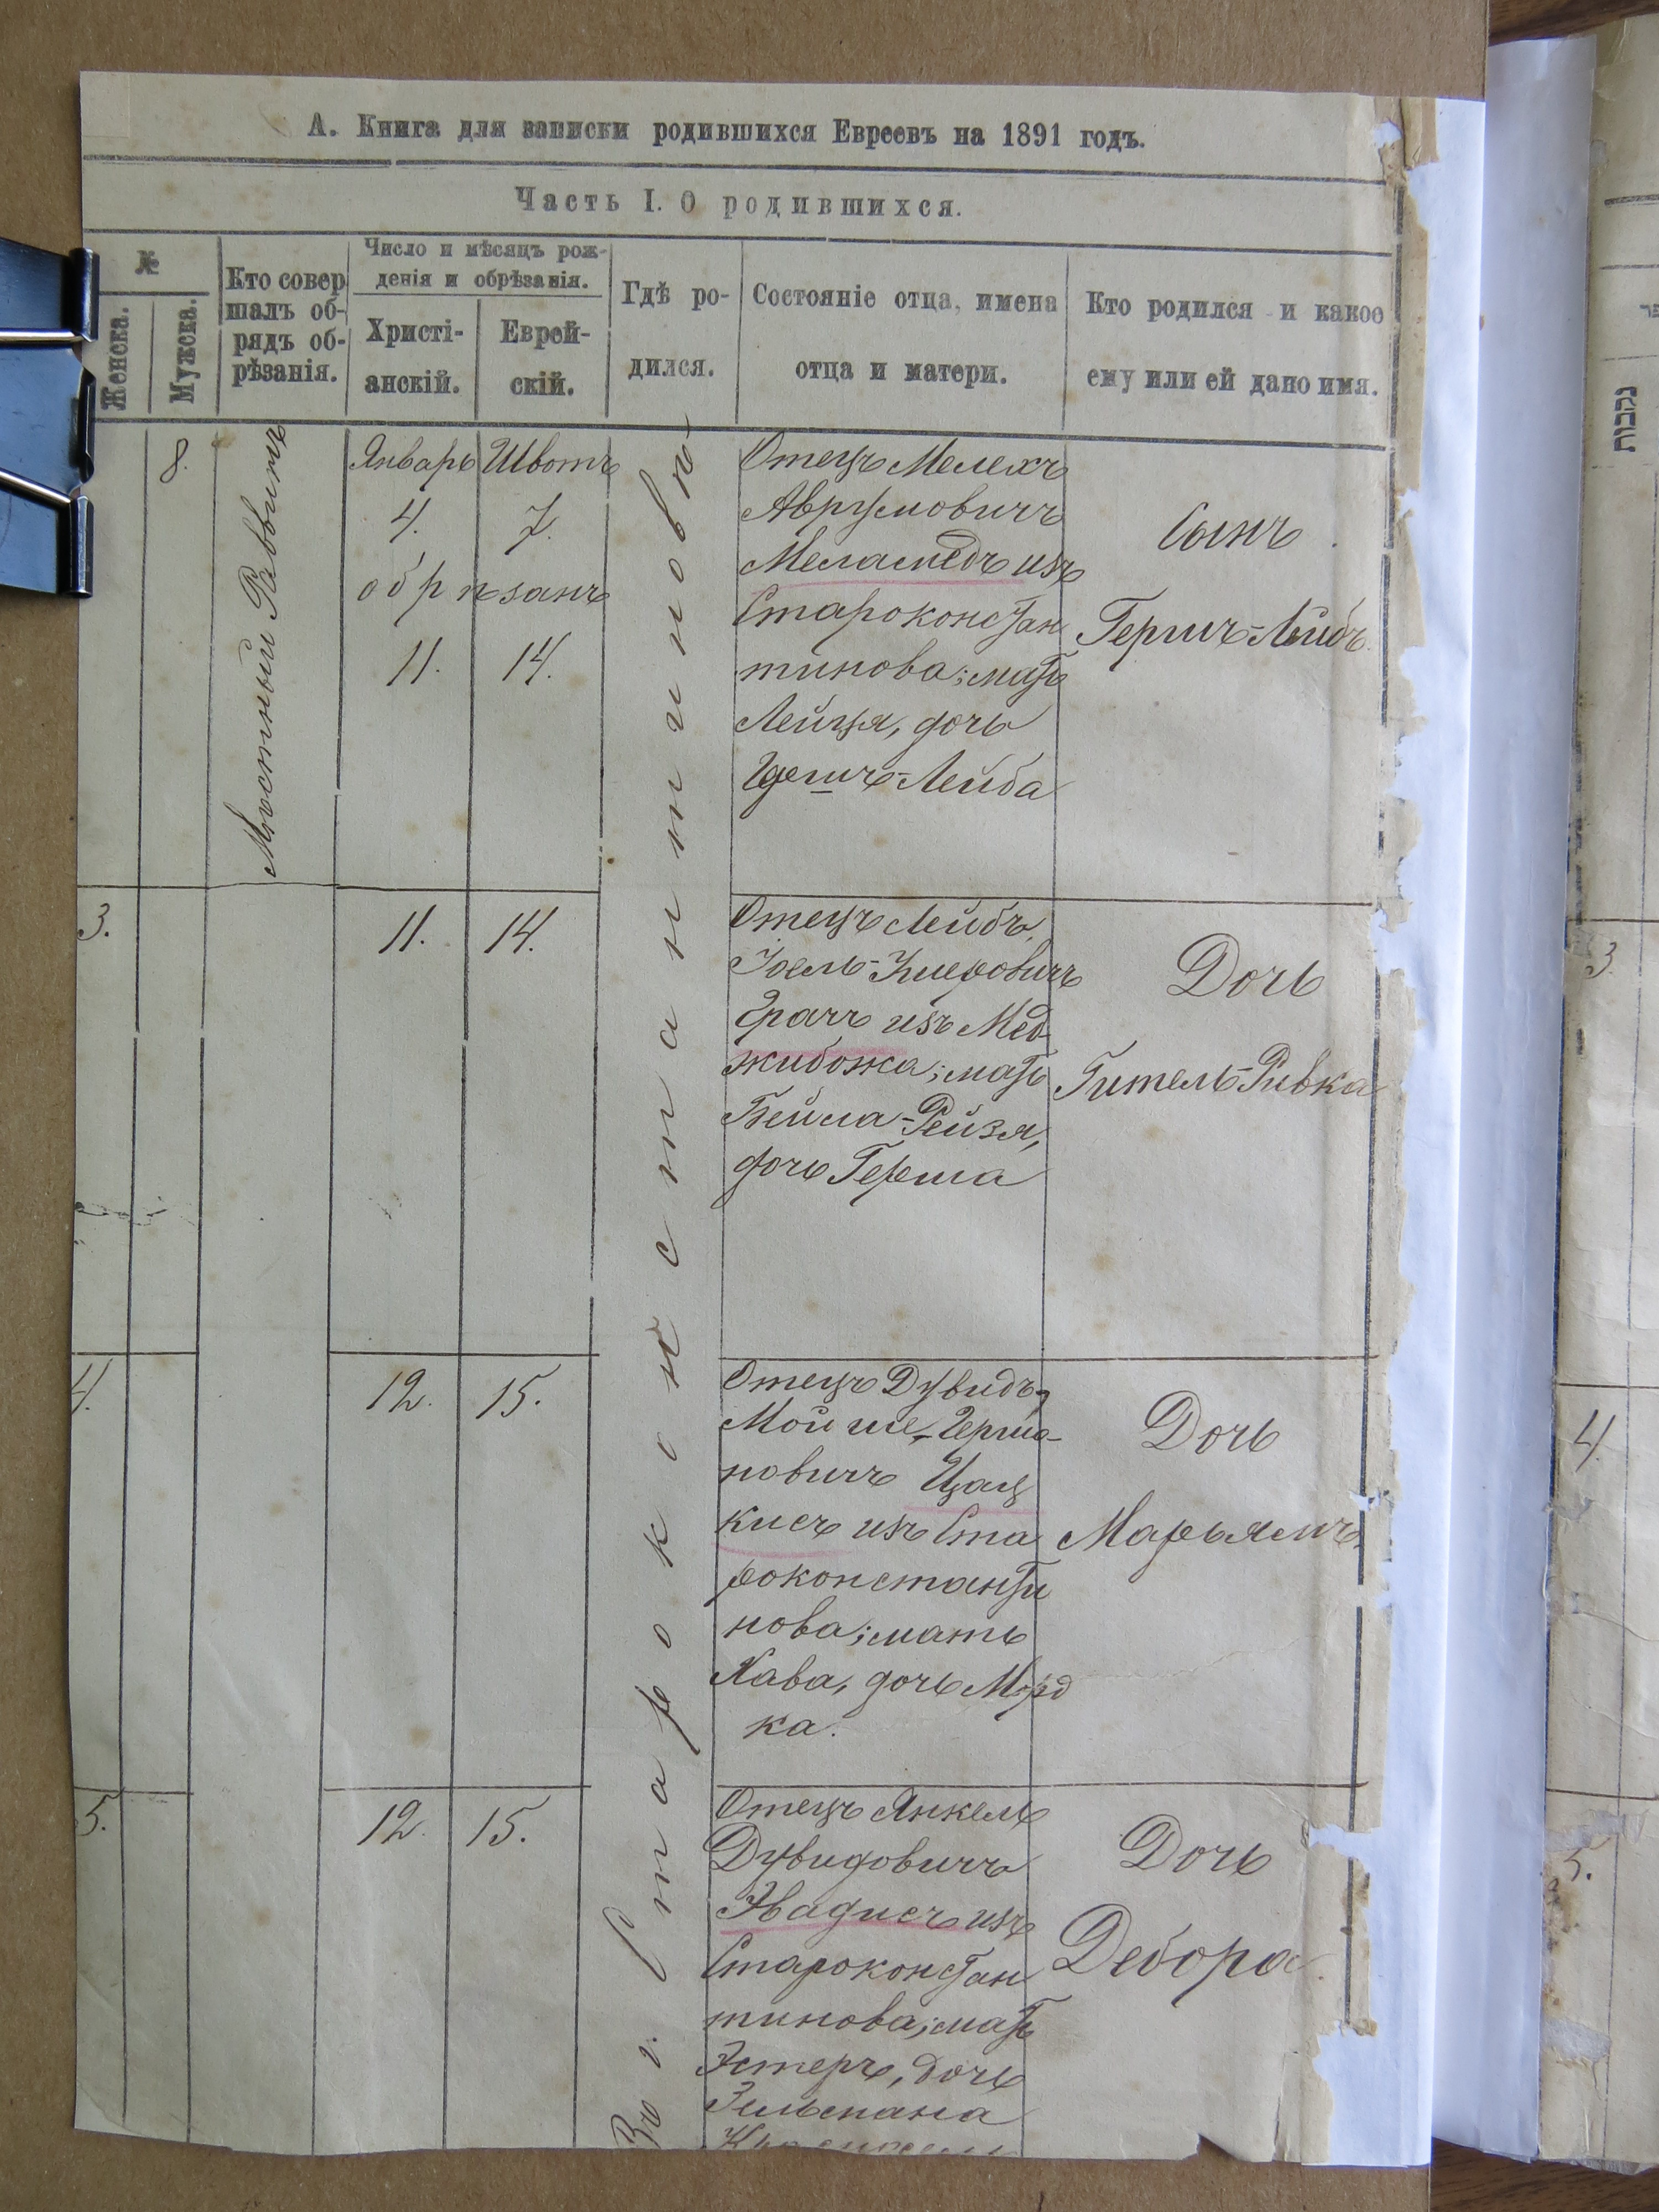 А. Книга для записки родившихся Евреевъ на 1891 годъ.
Часть I. О родившихся.
№
Женска.
Мужска.
Кто совер
шалъ об-
рядъ об-
рѣзанія.
Число и мѣсяцъ рож-
денія и обрѣзанія.
Христі-
анскій.
Еврей-
скій.
Гдѣ ро-
дился.
Состояніе отца, имена
отца и матери.
Кто родился и какое
ему или ей дано имя.
8.
Мѣстный Раввинъ
Январь Шватъ
4. 7.
обрѣзанъ
11. 14.
Въ г. Староконстантиновѣ
Отецъ Мелехъ
Аврумовичъ
Меламедъ изъ
Староконстан
тинова; мать
Лейця, дочь
Лейба
Сынъ
Гершъ-Лейбъ
3.
11. 14.
Отецъ Лейбъ
Меджибожа; мать
Бейла-Рейзя,
дочь Герша
Дочь
Гитель-Ривка
4.
12. 15.
Отецъ Дувидъ-
Мойше Гершо-
новичъ Цац
кисъ изъ Ста
роконстанти
нова; мать
Хава, дочь Морд
ка.
Дочь
Марьямъ
5.
12. 15.
Отецъ Янкель
Дувидовичъ
изъ
Староконстан
тинова; мать
Эстеръ, дочь
Дочь
Дебора
נקבות
3.
4.
5.